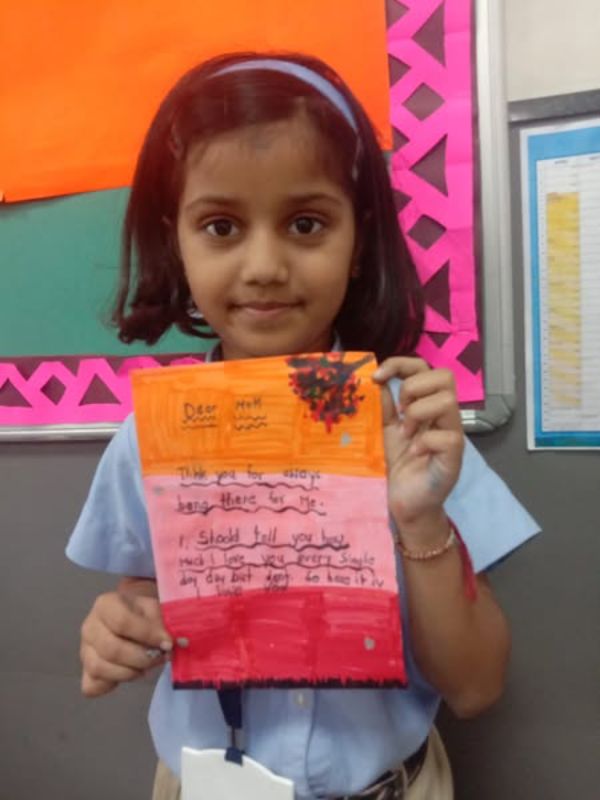 Dear Mom
Thnk you for always
being there for Me.
I. Should tell you how
much I love you every single
day day but dont. So here it is
I love you